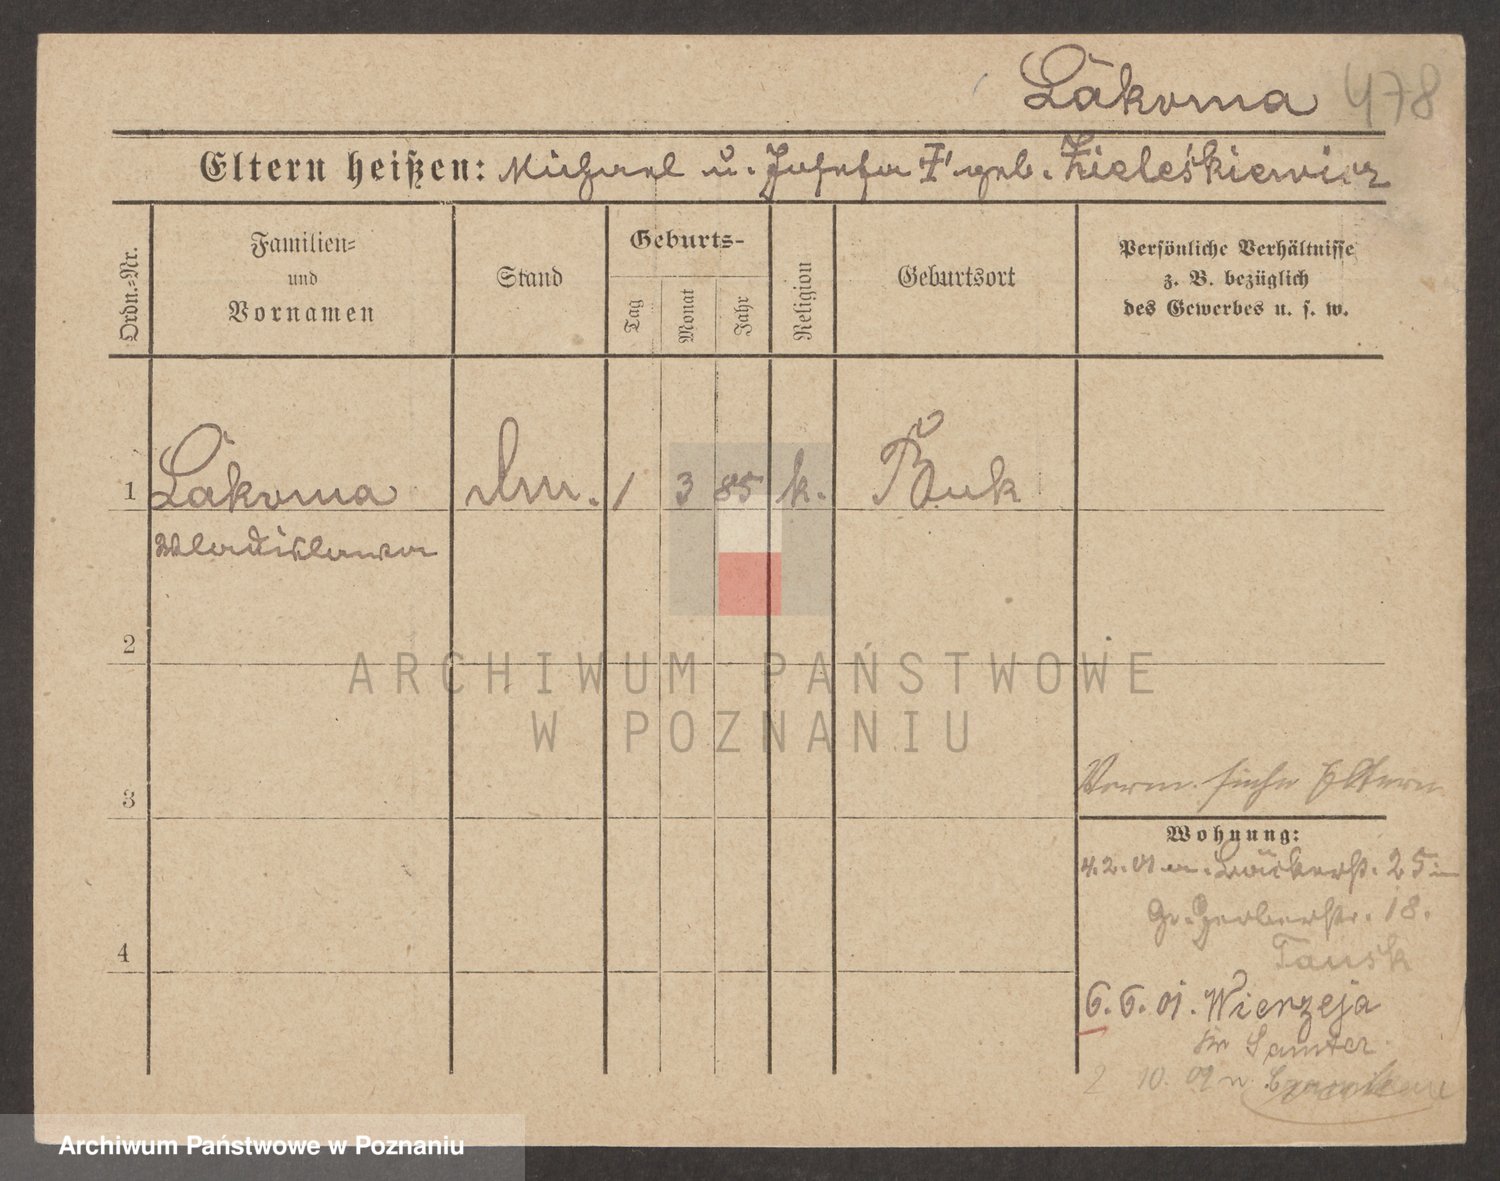 Lakoma 478
Eltern heißen: Michael u. Josefa geb. Zieleśkiewicz
Ordn.-Nr.
Familien-
und
Vornamen
Stand
Geburts-
Tag
Monat
Jahr
Religion
Geburtsort
Persönliche Verhältnisse
z. B. bezüglich
des Gewerbes u. s. w.
1 Lakoma 1 3 85 k. Buk
Wladislawa
2
ARCHIWUM PAŃSTWOWE
W POZNANIU
3
Verm. siehe Eltern
Wohnung:
4.2.01 Bäckerstr. 25
Gr. Gerberstr. 18.
Tausk
4
6.6.01. Wierzeja
Samter
2 10. 01
Archiwum Państwowe w Poznaniu